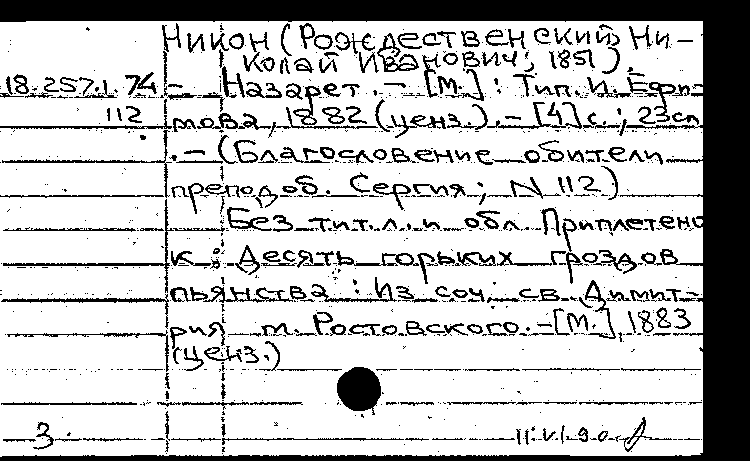 Никон (Рождественский Ни-
колай Иванович; 1851).
18.257.1.74 - Назарет. - [М.] : Тип. И. Ефи-
112 мова, 1882 (ценз.). - [4] с. ; 23 см
. - (Благословение обители
преподоб. Сергия ; N 112)
Без тит. л. и обл. Приплетено
к : Десять горьких гроздов
пьянства : Из соч. св. Димит-
рия м. Ростовского. - [М.], 1883
(ценз.)
3. 11.VI.90